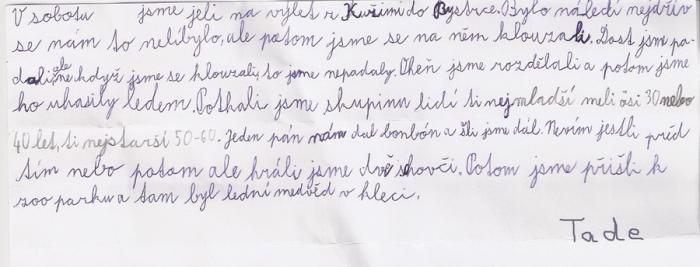 V sobotu jsme jeli na výlet z Kuřimi do Bystrce. Bylo náledí nejdřív
se nám to nelíbylo, ale potom jsme se na něm klouzali. Dost jsme pa-
dali, ale když jsme se klouzali, to jsme nepadaly. Oheň jsme rozdělali a potom jsme
ho uhasily ledem. Potkali jsme skupinu lidí ti nejmladší meli ôsi 30 nebo
40 let, ti nejstarší 50-60. Jeden pán nám dal bonbón a šli jsme dál. Nevím jestli před
tím nebo potom ale hráli jsme dvě schovči. Potom jsme přišli k
zoo parku a tam byl lední medvěd v kleci.
Tade